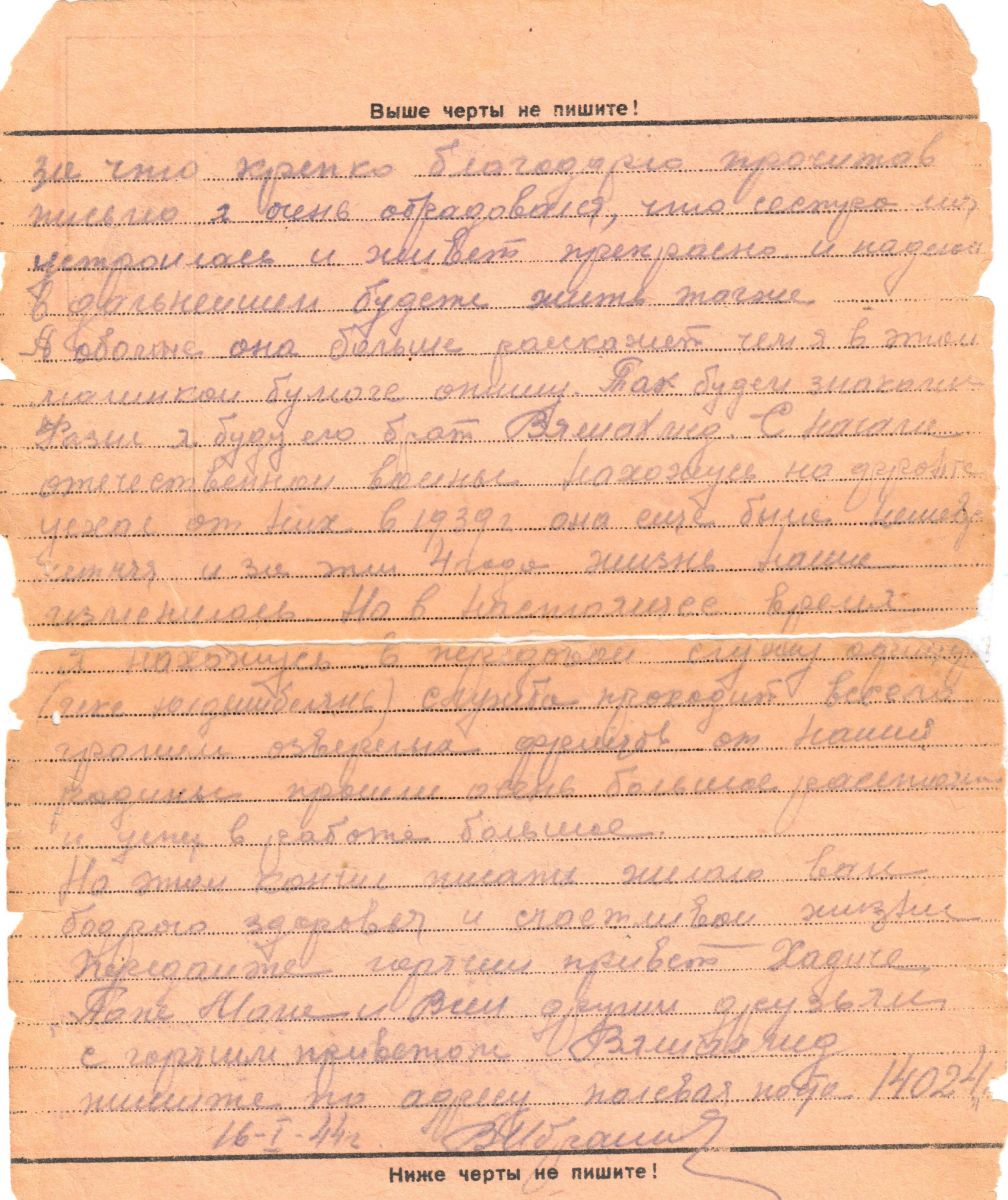 Выше черты не пишите!
за что крепко благодарю прочитав
письмо я очень обрадовался, что сестра
устроилась и живет прекрасно и
в дальнейшем будете жить также
А обо мне она больше расскажет чем я в этом
бумаге опишу. Так будем знакомы
я буду его брат Вялиахмед. С начала
отечественной войны нахожусь на фронте
уехал от них в 1939 г она еще была
и за эти 4 года жизнь наша
изменилась На в настоящее время
я нахожусь в передовой служу
служба проходит весело
громим озверелых фрицов от нашей
родины прошли очень большое
и в работе большое.
На этом кончил писать желаю вам
бодрого здоровья и счастливой жизни
Передайте горячий привет Хадиче
Папе Маме и Всем другим друзьям
с горячим приветом Вялиахмед
пишите по адресу полевая почта 14024
16-I-44 г.
Ниже черты не пишите!